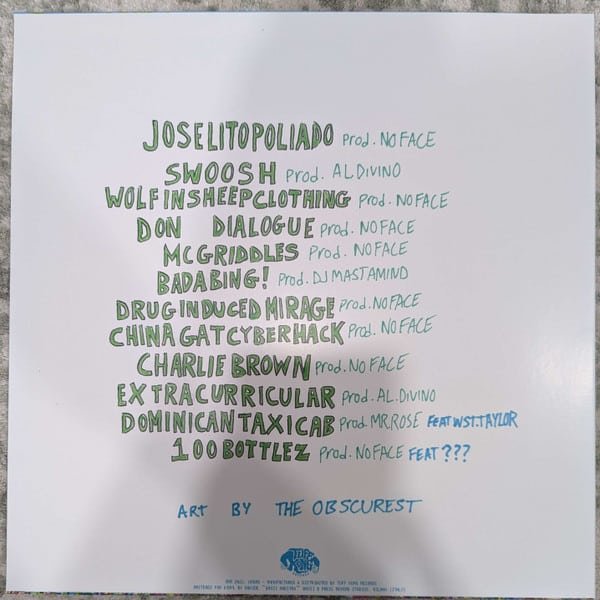 JOSELITOPOLIADO Prod. NO FACE
SWOOSH Prod. AL DIVINO
WOLF IN SHEEP CLOTHING Prod. NOFACE
DON DIALOGUE Prod. NOFACE
MCGRIDDLES Prod. NOFACE
BADABING! Prod. DJ MASTAMIND
DRUG INDUCED MIRAGE Prod. NO FACE
CHINAGATCYBERHACK Prod. NO FACE
CHARLIE BROWN Prod. NO FACE
EXTRACURRICULAR Prod. AL.DIVINO
DOMINICAN TAXI CAB Prod. MR.ROSE FEAT WST.TAYLOR
100 BOTTLEZ Prod. NOFACE FEAT ???
ART BY THE OBSCUREST
TUFF KONG
MANUFACTURED & DISTRIBUTED BY TUFF KONG RECORDS